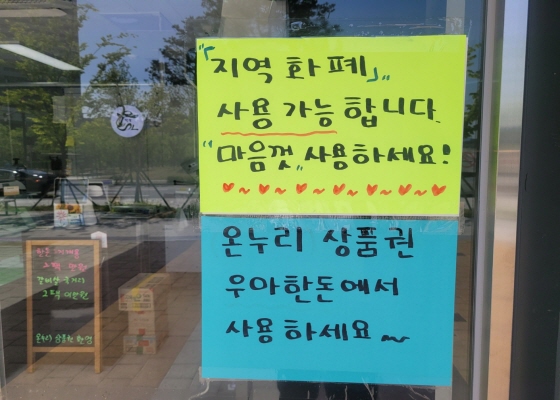 「지역 화폐」
사용 가능합니다.
"마음껏" 사용하세요!
온누리 상품권
우아한돈에서
사용하세요~
온누리 상품권 환영